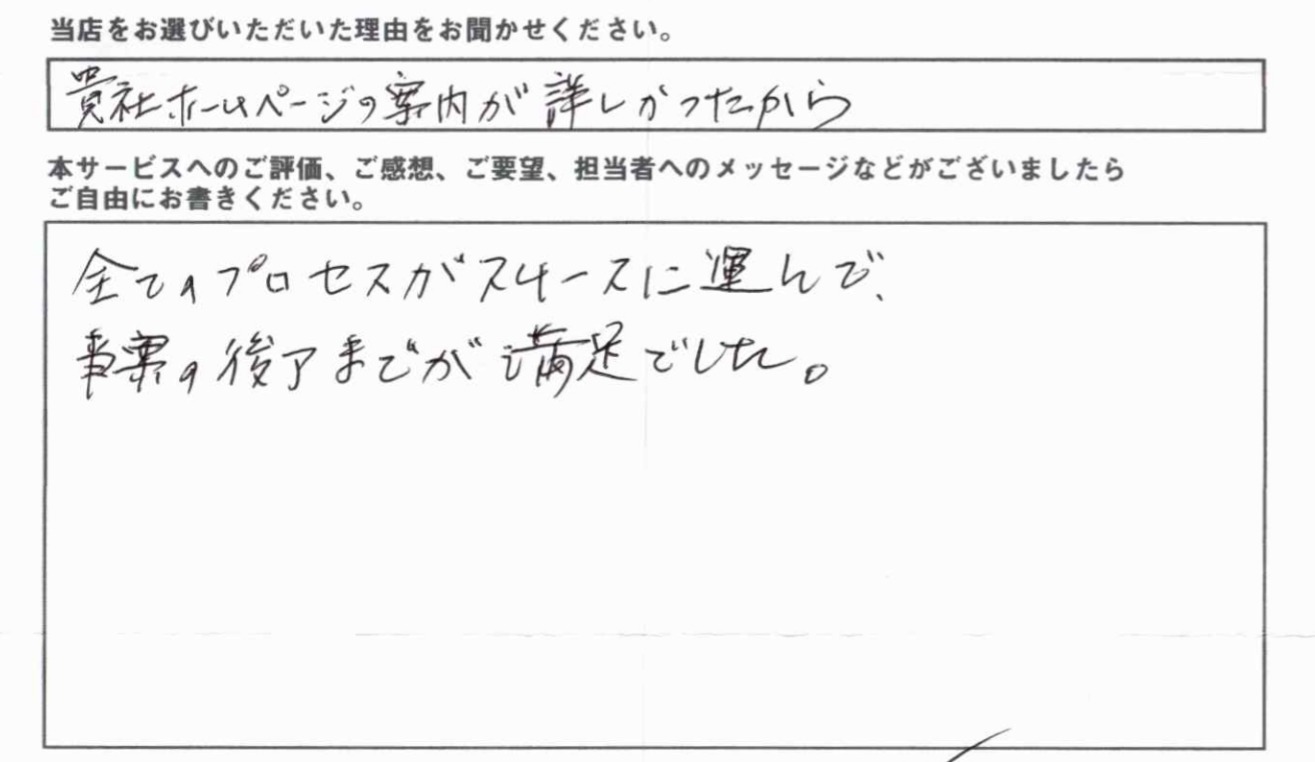 当店をお選びいただいた理由をお聞かせください。
貴社ホームページの案内が詳しかったから
本サービスへのご評価、ご感想、ご要望、担当者へのメッセージなどがございましたら
ご自由にお書きください。
全てのプロセスがスムースに運んで、
の後了までが満足でした。